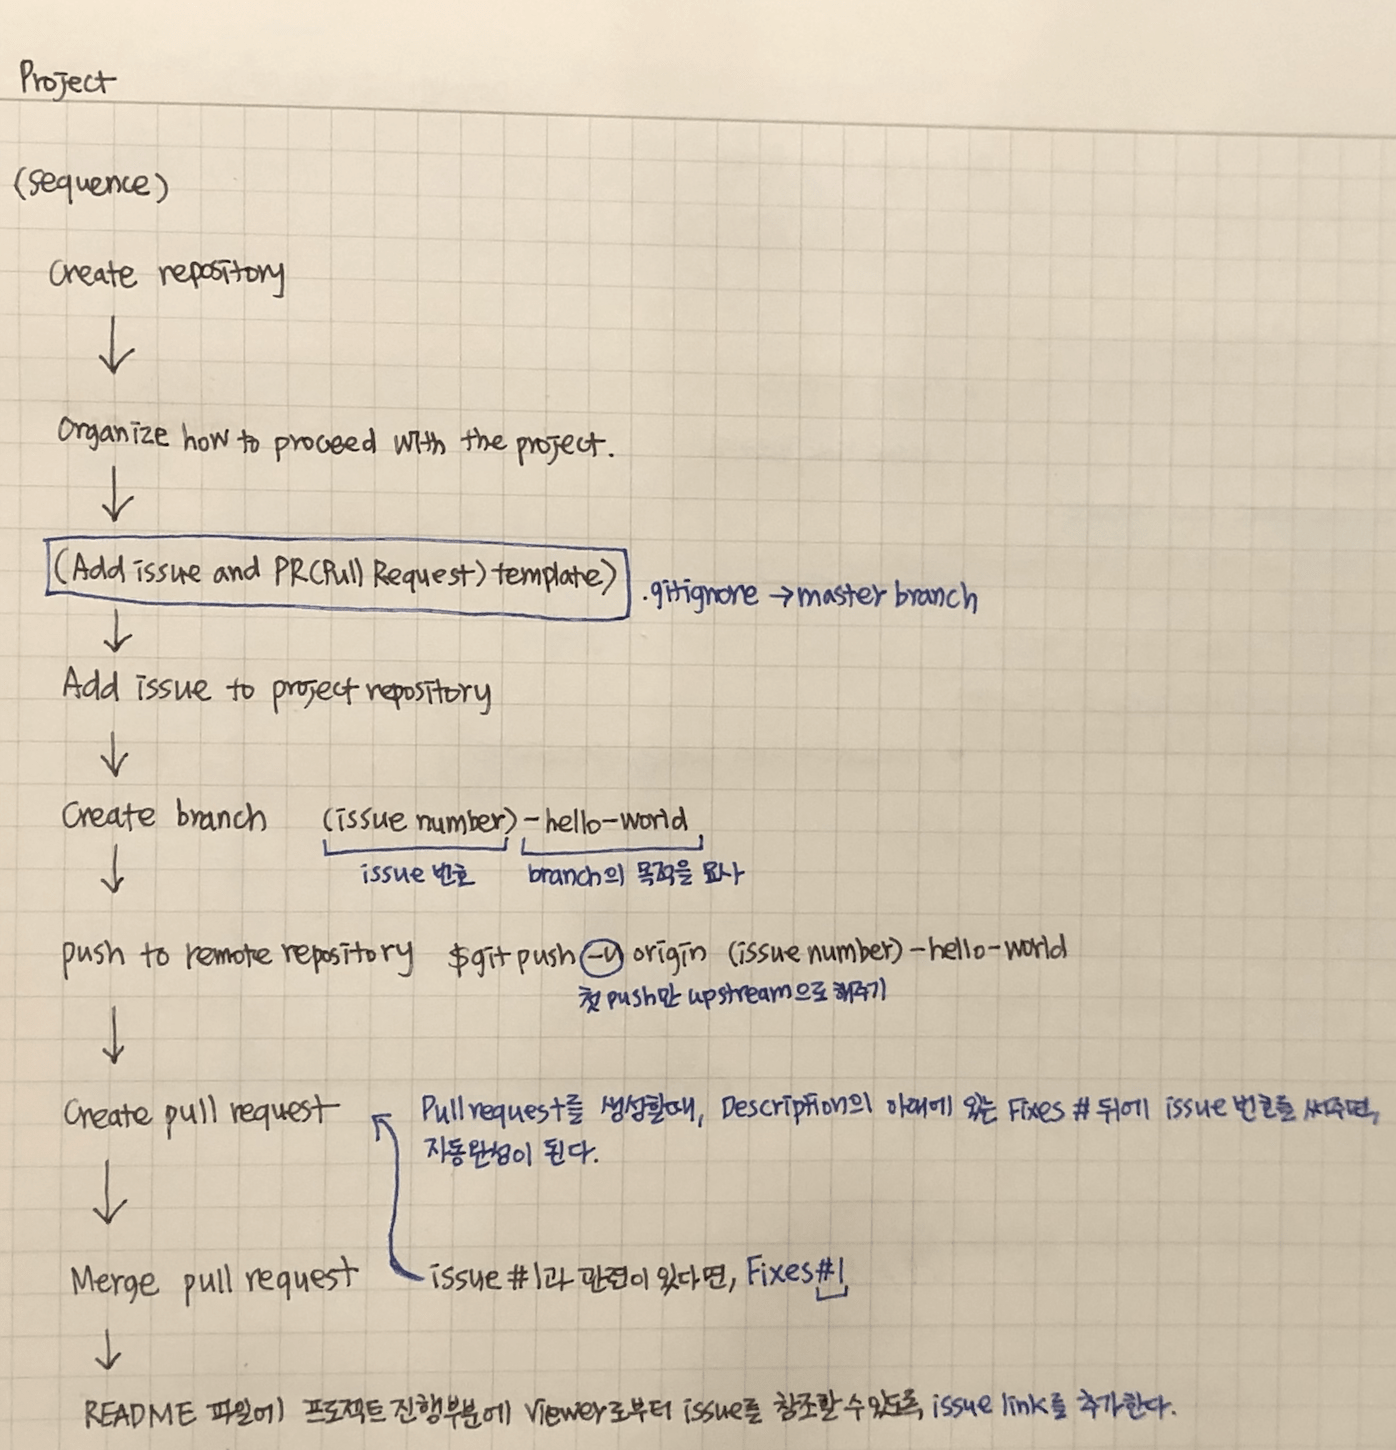 Project
(sequence)
Create repository
↓
Organize how to proceed with the project.
↓
(Add issue and PR(Pull Request) template)
.gitignore → master branch
↓
Add issue to project repository
↓
Create branch (issue number)-hello-world
issue 번호 branch의 목적을 묘사
↓
push to remote repository $git push -u origin (issue number)-hello-world
첫 push만 upstream으로 해주기
↓
Create pull request Pull request를 생성할때, Description의 아래에 있는 Fixes # 뒤에 issue 번호를 써주면,
자동완성이 된다.
↓
Merge pull request issue #1과 관련이 있다면, Fixes #1
↓
README 파일에 프로젝트 진행부분에 viewer로부터 issue를 참조할 수 있도록, issue link를 추가한다.